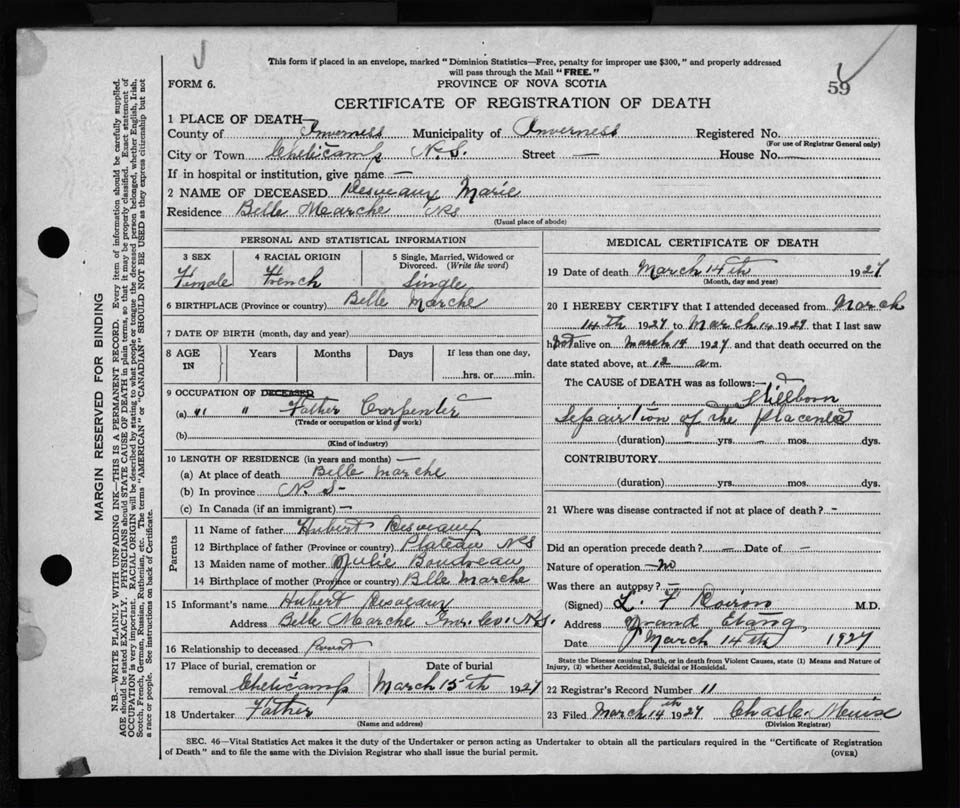 This form if placed in an envelope, marked "Dominion Statistics—Free, penalty for improper use $300," and properly addressed
will pass through the Mail "FREE."
FORM 6. PROVINCE OF NOVA SCOTIA 59
CERTIFICATE OF REGISTRATION OF DEATH
1 PLACE OF DEATH—
County of Inverness Municipality of Inverness Registered No.
(For use of Registrar General only)
City or Town Cheticamp N.S. Street — House No. —
If in hospital or institution, give name —
2 NAME OF DECEASED Desveaux Marie
Residence Belle Marche NS
(Usual place of abode)
PERSONAL AND STATISTICAL INFORMATION
3 SEX 4 RACIAL ORIGIN 5 Single, Married, Widowed or
Divorced. (Write the word)
Female French Single
6 BIRTHPLACE (Province or country) Belle Marche
7 DATE OF BIRTH (month, day and year)
8 AGE IN Years Months Days If less than one day,
hrs. or min.
9 OCCUPATION OF DECEASED
(a) " " Father Carpenter
(Trade or occupation or kind of work)
(b)
(Kind of industry)
10 LENGTH OF RESIDENCE (in years and months) —
(a) At place of death Belle Marche
(b) In province N. S—
(c) In Canada (if an immigrant) —
Parents
11 Name of father Hubert Desveaux
12 Birthplace of father (Province or country) Plateau NS
13 Maiden name of mother Julie Boudreau
14 Birthplace of mother (Province or country) Blle Marche
15 Informant's name Hubert Desveaux
Address Belle Marche Inv. Co. N.S.
16 Relationship to deceased Parent
17 Place of burial, cremation or Date of burial
removal Cheticamp March 15th 1927
18 Undertaker Father
(Name and address)
MEDICAL CERTIFICATE OF DEATH
19 Date of death March 14th 1927
(Month, day and year)
20 I HEREBY CERTIFY that I attended deceased from March
14th 1927 to March 14 1927 that I last saw
h not alive on March 14 1927 and that death occurred on the
date stated above, at 12 a.m.
The CAUSE OF DEATH was as follows:— Stillborn
Sepairtion of the Placenta
(duration) yrs. — mos. dys.
CONTRIBUTORY
(duration) yrs. mos. dys.
21 Where was disease contracted if not at place of death? -
Did an operation precede death? — Date of —
Nature of operation — no
Was there an autopsy? —
(Signed) L. F Doiron M.D.
Address Grand Etang,
Date March 14th 1927
State the Disease causing Death, or in death from Violent Causes, state (1) Means and Nature of
Injury, (2) whether Accidental, Suicidal or Homicidal.
22 Registrar's Record Number 11
23 Filed March 14th 1927
(Division Registrar)
SEC. 46—Vital Statistics Act makes it the duty of the Undertaker or person acting as Undertaker to obtain all the particulars required in the "Certificate of Registration
of Death" and to file the same with the Division Registrar who shall issue the burial permit. (OVER)
MARGIN RESERVED FOR BINDING
N.B.—WRITE PLAINLY WITH UNFADING INK—THIS IS A PERMANENT RECORD. Every item of information should be carefully supplied.
AGE should be stated EXACTLY. PHYSICIANS should STATE CAUSE OF DEATH in plain terms, so that it may be properly classified. Exact statement of
OCCUPATION is very important. RACIAL ORIGIN will be described by stating to what people or tongue the deceased person belonged, whether English, Irish,
Scotch, French, German, Russian, Ruthenian, etc. The terms "AMERICAN" or "CANADIAN" SHOULD NOT BE USED as they express citizenship but not
a race or people. See instructions on back of Certificate.